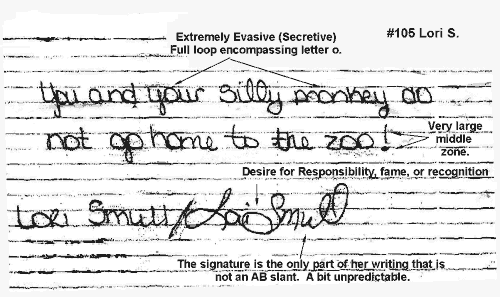 #105 Lori S.
Extremely Evasive (Secretive)
Full loop encompassing letter o.
You and your silly monkey do
not go home to the zoo!
Very large
middle
zone.
Desire for Responsibility, fame, or recognition
Lori Smull / Lori Smull
The signature is the only part of her writing that is
not an AB slant. A bit unpredictable.